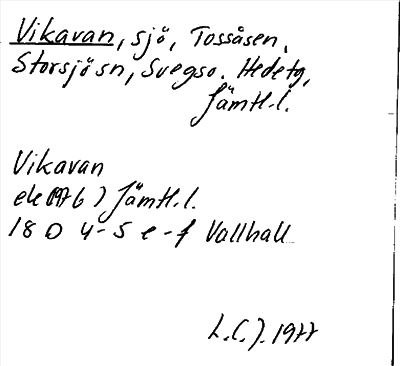 Vikavan, sjö, Tossåsen,
Storsjö sn, Svegs o. Hede tg,
Jämtl. l.
Vikavan
ek (1976) Jämtl. l.
18 D 4-5 e-f Vallhall
L.C.J. 1977